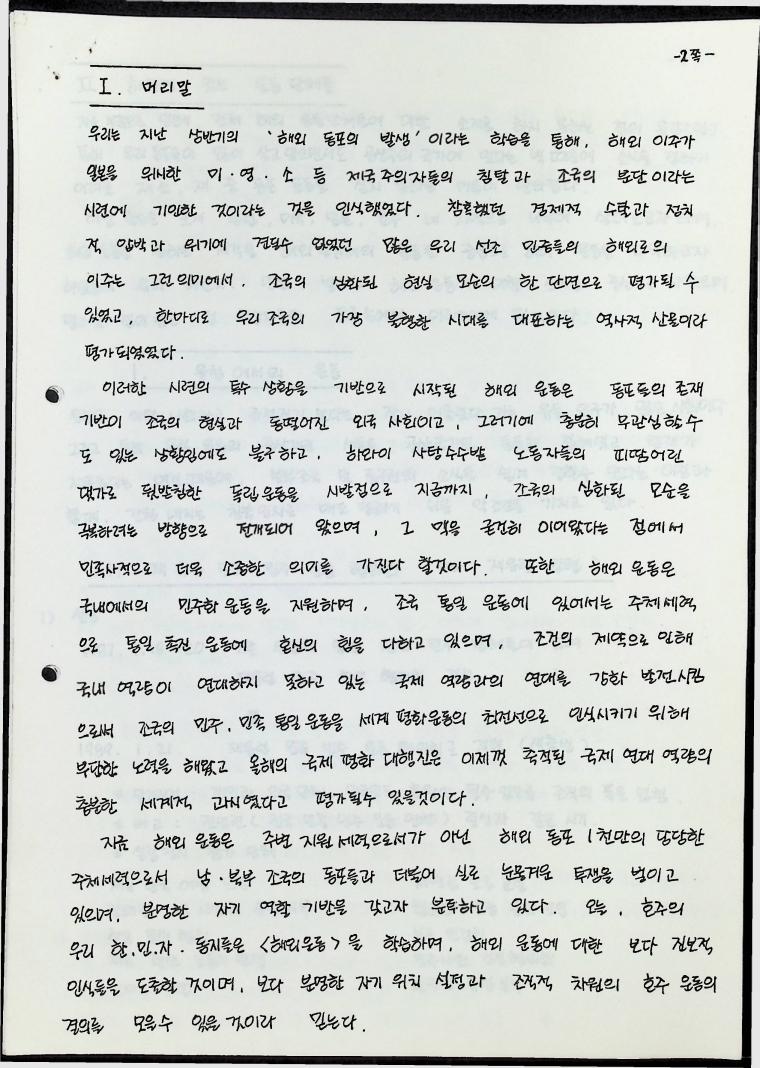 -2쪽-
I. 머리말
우리는 지난 상반기의 '해외 동포의 발생'이라는 학습을 통해, 해외 이주가
일본을 위시한 미·영·소 등 제국주의자들의 침탈과 조국의 분단이라는
시련에 기인한 것이라는 것을 인식했었다. 참혹했던 경제적 수탈과 정치
적 압박과 위기에 견딜수 없었던 많은 우리 선조 민중들의 해외로의
이주는 그런 의미에서, 조국의 심화된 현실 모순의 한 단면으로 평가될 수
있었고, 한마디로 우리 조국의 가장 불행한 시대를 대표하는 역사적 산물이라
평가되었었다.
이러한 시련의 특수 상황을 기반으로 시작된 해외 운동은 동포들의 존재
기반이 조국의 현실과 동떨어진 외국 사회이고, 그러기에 충분히 무관심할 수
도 있는 상황임에도 불구하고, 하와이 사탕수수밭 노동자들의 피땀어린
댓가로 뒷받침한 독립운동을 시발점으로 지금까지, 조국의 심화된 모순을
극복하려는 방향으로 전개되어 왔으며, 그 맥을 굳건히 이어왔다는 점에서
민족사적으로 더욱 소중한 의미를 가진다 할것이다. 또한 해외 운동은
국내에서의 민주화 운동을 지원하며, 조국 통일 운동에 있어서는 주체 세력
으로 통일 촉진 운동에 혼신의 힘을 다하고 있으며, 조건의 제약으로 인해
국내 역량이 연대하지 못하고 있는 국제 역량과의 연대를 강화 발전시킴
으로서 조국의 민주, 민족 통일 운동을 세계 평화운동의 최전선으로 인식시키기 위해
부단한 노력을 해왔고 올해의 국제 평화 대행진은 이제껏 축적된 국제 연대 역량의
충분한 세계적 과시였다고 평가될수 있을것이다.
지금 해외 운동은 주변 지원 세력으로서가 아닌 해외 동포 1천만의 당당한
주체세력으로서 남·북부 조국의 동포들과 더불어 실로 눈물겨운 투쟁을 벌이고
있으며, 분명한 자기 역할 기반을 갖고자 분투하고 있다. 오늘, 호주의
우리 한.민.자. 동지들은 <해외운동>을 학습하며, 해외 운동에 대한 보다 진보적
인식들을 도출할 것이며, 보다 분명한 자기 위치 설정과 조직적 차원의 호주 운동의
결의를 모을수 있을 것이라 믿는다.